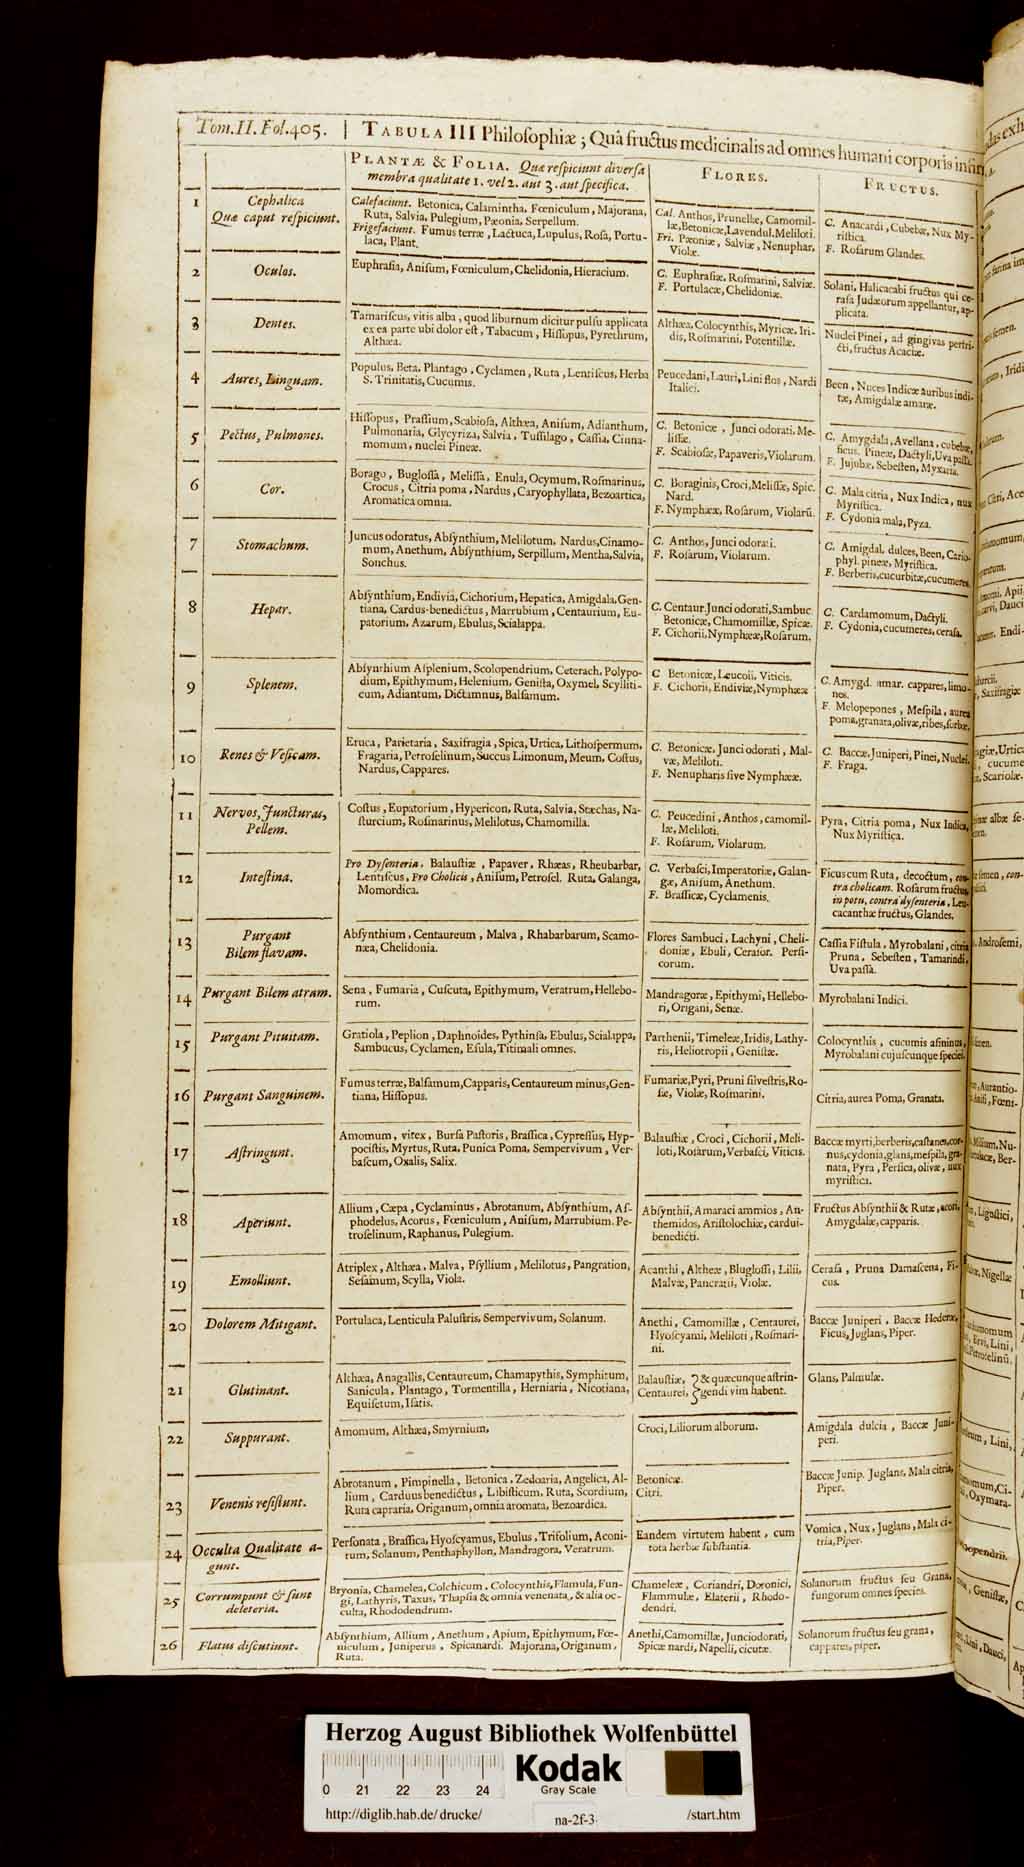 Tom. II. Fol. 405. | TABULA III Philosophiæ ; Quâ fructus medicinalis ad omnes humani corporis
PLANTÆ & FOLIA. Quæ respiciunt diversa
membra qualitate 1. vel 2. aut 3. aut specifica.
FLORES.
FRUCTUS.
1
Cephalica
Quæ caput respiciunt.
Calefaciunt. Betonica, Calamintha, Fœniculum, Majorana,
Ruta, Salvia, Pulegium, Pæonia, Serpellum.
Frigefaciunt. Fumus terræ, Lactuca, Lupulus, Rosa, Portu-
laca, Plant.
Cal. Anthos, Prunellæ, Camomil-
læ, Betonicæ, Lavendul. Meliloti.
Fri. Pæoniæ, Salviæ, Nenuphar,
Violæ.
C. Anacardi, Cubebæ, Nux My-
ristica.
F. Rosarum Glandes.
2
Oculos.
Euphrasia, Anisum, Fœniculum, Chelidonia, Hieracium.
C. Euphrasiæ, Rosmarini, Salviæ.
F. Portulacæ, Chelidoniæ.
Solani, Halicacabi fructus qui ce-
rasa Judæorum appellantur, ap-
plicata.
3
Dentes.
Tamariscus, vitis alba, quod liburnum dicitur pulsu applicata
ex ea parte ubi dolor est, Tabacum, Hissopus, Pyrethrum,
Althæa.
Althæa, Colocynthis, Myricæ, Iri-
dis, Rosmarini, Potentillæ.
Nuclei Pinei, ad gingivas perfri-
cti, fructus Acaciæ.
4
Aures, Linguam.
Populus, Beta, Plantago, Cyclamen, Ruta, Lentiscus, Herba
S. Trinitatis, Cucumis.
Peucedani, Lauri, Lini flos, Nardi
Italici.
Been, Nuces Indicæ auribus indi-
tæ, Amigdalæ amaræ.
5
Pectus, Pulmones.
Hissopus, Prassium, Scabiosa, Althæa, Anisum, Adianthum,
Pulmonaria, Glycyriza, Salvia, Tussilago, Cassia, Cinna-
momum, nuclei Pineæ.
C. Betonicæ, Junci odorati, Me-
lissæ.
F. Scabiosæ, Papaveris, Violarum.
C. Amygdala, Avellana, cubebæ,
ficus, Pineæ, Dactyli, Uva passa.
F. Jujubæ, Sebesten, Myxaria.
6
Cor.
Borago, Buglossa, Melissa, Enula, Ocymum, Rosmarinus,
Crocus, Citria poma, Nardus, Caryophyllata, Bezoartica,
Aromatica omnia.
C. Boraginis, Croci, Melissæ, Spic.
Nard.
F. Nymphææ, Rosarum, Violarū.
C. Mala citria, Nux Indica, nux
Myristica.
F. Cydonia mala, Pyza.
7
Stomachum.
Juncus odoratus, Absynthium, Melilotum, Nardus, Cinamo-
mum, Anethum, Absynthium, Serpillum, Mentha, Salvia,
Sonchus.
C. Anthos, Junci odorati.
F. Rosarum, Violarum.
C. Amigdal. dulces, Been, Cario-
phyl. pineæ, Myristica.
F. Berberis, cucurbitæ, cucumeres.
8
Hepar.
Absynthium, Endivia, Cichorium, Hepatica, Amigdala, Gen-
tiana, Cardus-benedictus, Marrubium, Centaurium, Eu-
patorium, Azarum, Ebulus, Scialappa.
C. Centaur. Junci odorati, Sambuc.
Betonicæ, Chamomillæ, Spicæ.
F. Cichorii, Nymphææ, Rosarum.
C. Cardamomum, Dactyli.
F. Cydonia, cucumeres, cerasa.
9
Splenem.
Absynthium Asplenium, Scolopendrium, Ceterach, Polypo-
dium, Epithymum, Helenium, Genista, Oxymel, Scylliti-
cum, Adiantum, Dictamnus, Balsamum.
C Betonicæ, Leucoii, Viticis.
F. Cichorii, Endiviæ, Nymphææ
C. Amygd. amar. cappares, limo-
nes.
F. Melopepones, Mespila, aurea
poma, granata, olivæ, ribes, sorbæ.
10
Renes & Vesicam.
Eruca, Parietaria, Saxifragia, Spica, Urtica, Lithospermum,
Fragaria, Petroselinum, Succus Limonum, Meum, Costus,
Nardus, Cappares.
C. Betonicæ, Junci odorati, Mal-
væ, Meliloti.
F. Nenupharis sive Nymphææ.
C. Baccæ, Juniperi, Pinei, Nuclei.
F. Fraga.
11
Nervos, Juncturas,
Pellem.
Costus, Eupatorium, Hypericon, Ruta, Salvia, Stæchas, Na-
sturcium, Rosmarinus, Melilotus, Chamomilla.
C. Peucedini, Anthos, camomil-
læ, Meliloti.
F. Rosarum, Violarum.
Pyra, Citria poma, Nux Indica,
Nux Myristica.
12
Intestina.
Pro Dysenteria. Balaustiæ, Papaver, Rhæas, Rheubarbar,
Lentiscus, Pro Cholicis, Anisum, Petrosel. Ruta, Galanga,
Momordica.
C. Verbasci, Imperatoriæ, Galan-
gæ, Anisum, Anethum.
F. Brassicæ, Cyclamenis.
Ficus cum Ruta, decoctum, con-
tra cholicam. Rosarum fructus,
in potu, contra dysenteria, Leu-
cacanthæ fructus, Glandes.
13
Purgant
Bilem flavam.
Absynthium, Centaureum, Malva, Rhabarbarum, Scamo-
næa, Chelidonia.
Flores Sambuci, Lachyni, Cheli-
doniæ, Ebuli, Cerasor. Persi-
corum.
Cassia Fistula, Myrobalani, citria
Pruna, Sebesten, Tamarindi,
Uva passa.
14
Purgant Bilem atram.
Sena, Fumaria, Cuscuta, Epithymum, Veratrum, Hellebo-
rum.
Mandragoræ, Epithymi, Hellebo-
ri, Origani, Senæ.
Myrobalani Indici.
15
Purgant Pituitam.
Gratiola, Peplion, Daphnoides, Pythinsa, Ebulus, Scialappa,
Sambucus, Cyclamen, Esula, Titimali omnes.
Parthenii, Timeleæ, Iridis, Lathy-
ris, Heliotropii, Genistæ.
Colocynthis, cucumis asininus,
Myrobalani cujuscunque speciei.
16
Purgant Sanguinem.
Fumus terræ, Balsamum, Capparis, Centaureum minus, Gen-
tiana, Hissopus.
Fumariæ, Pyri, Pruni silvestris, Ro-
sæ, Violæ, Rosmarini.
Citria, aurea Poma, Granata.
17
Astringunt.
Amomum, vitex, Bursa Pastoris, Brassica, Cypressus, Hyp-
pocistis, Myrtus, Ruta, Punica Poma, Sempervivum, Ver-
bascum, Oxalis, Salix.
Balaustiæ, Croci, Cichorii, Meli-
loti, Rosarum, Verbasci, Viticis.
Baccæ myrti, berberis, castanea, cor-
nus, cydonia, glans, mespila, gra-
nata, Pyra, Persica, olivæ, nux
myristica.
18
Aperiunt.
Allium, Cæpa, Cyclaminus, Abrotanum, Absynthium, As-
phodelus, Acorus, Fœniculum, Anisum, Marrubium, Pe-
troselinum, Raphanus, Pulegium.
Absynhii, Amaraci ammios, An-
themidos, Aristolochiæ, cardui-
benedicti.
Fructus Absynthii & Rutæ, acori,
Amygdalæ, capparis.
19
Emolliunt.
Atriplex, Althæa, Malva, Psyllium, Melilotus, Pangration,
Sesamum, Scylla, Viola.
Acanthi, Altheæ, Bluglossi, Lilii,
Malvæ, Pancratii, Violæ.
Cerasa, Pruna Damascena, Fi-
cus.
20
Dolorem Mitigant.
Portulaca, Lenticula Palustris, Sempervivum, Solanum.
Anethi, Camomillæ, Centaurei,
Hyoscyami, Meliloti, Rosmari-
ni.
Baccæ Juniperi, Baccæ Hederæ,
Ficus, Juglans, Piper.
21
Glutinant.
Althæa, Anagallis, Centaureum, Chamapythis, Symphitum,
Sanicula, Plantago, Tormentilla, Herniaria, Nicotiana,
Equisetum, Isatis.
Balaustiæ, } & quæcunque astrin-
Centaurei, } gendi vim habent.
Glans, Palmulæ.
22
Suppurant.
Amomum, Althæa, Smyrnium,
Croci, Liliorum alborum.
Amigdala dulcia, Baccæ Juni-
peri.
23
Venenis resistunt.
Abrotanum, Pimpinella, Betonica, Zedoaria, Angelica, Al-
lium, Carduus benedictus, Libisticum, Ruta, Scordium,
Ruta capraria, Origanum, omnia aromata, Bezoardica.
Betonicæ.
Citri.
Baccæ Junip. Juglans, Mala citria,
Piper.
24
Occulta Qualitate a-
gunt.
Personata, Brassica, Hyoscyamus, Ebulus, Trifolium, Aconi-
tum, Solanum, Penthaphyllon, Mandragora, Veratrum.
Eandem virtutem habent, cum
tota herbæ substantia.
Vomica, Nux, Juglans, Mala ci-
tria, Piper.
25
Corrumpunt & sunt
deleteria.
Bryonia, Chamelea, Colchicum, Colocynthis, Flamula, Fun-
gi, Lathyris, Taxus, Thapsia & omnia venenata, & alia oc-
culta, Rhododendrum.
Chameleæ, Coriandri, Doronici,
Flammulæ, Elaterii, Rhodo-
dendri.
Solanorum fructus seu Grana,
fungorum omnes species.
26
Flatus discutiunt.
Absynthium, Allium, Anethum, Apium, Epithymum, Fœ-
niculum, Juniperus, Spicanardi, Majorana, Origanum,
Ruta.
Anethi, Camomillæ, Junciodorati,
Spicæ nardi, Napelli, cicutæ.
Solanorum fructus seu grana,
cappares, piper.
Herzog August Bibliothek Wolfenbüttel
Kodak
Gray Scale
0 21 22 23 24
http://diglib.hab.de/drucke/ na-2f-3 /start.htm